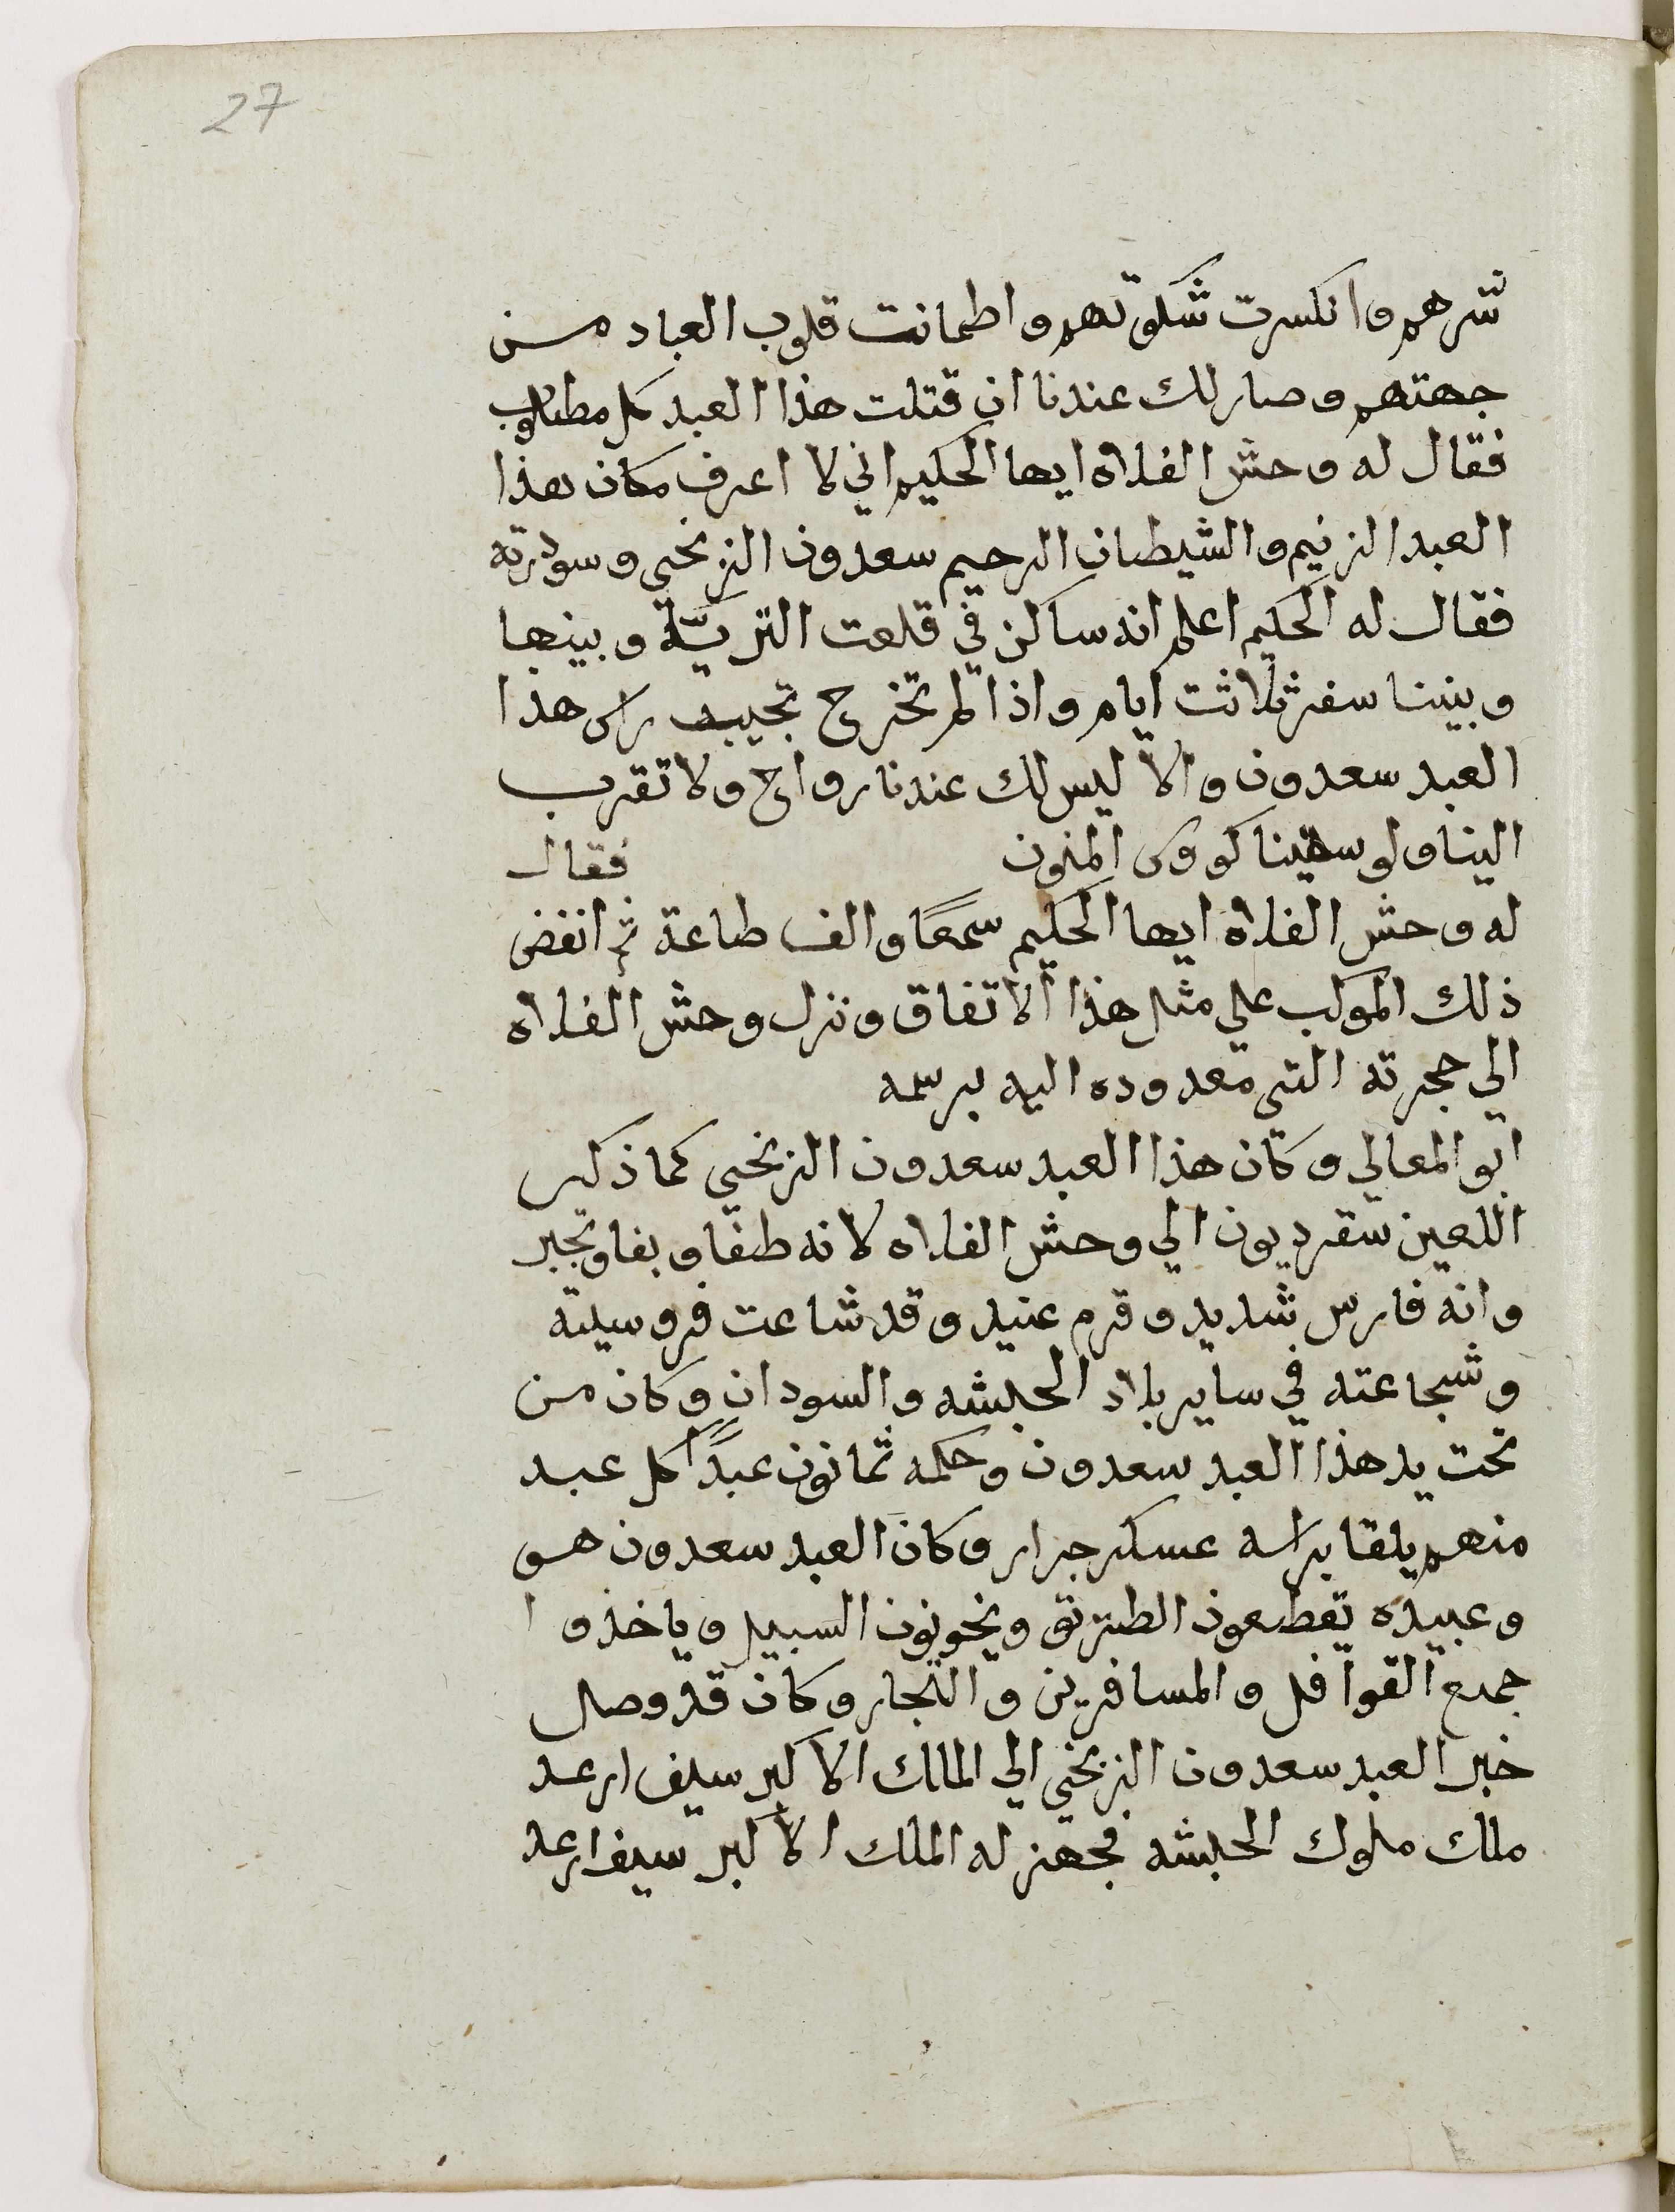 27
شرهم وانكسرت شكوتهم واطمانت قلوب العباد من
جهتهم وصار لك عندنا ان قتلت هذا العبد كل مطلوب
فقال له وحش الفلاه ايها الحكيم اني لا اعرف مكان هذا
العبد الزنيم والشيطان الرجيم سعدون الزنجي وسودرته
فقال له الحكيم اعلم انه ساكن في قلعت التريّة وبينها
وبيننا سفر ثلاثت ايام واذا لم تخرج تجيب راس هذا
العبد سعدون والا ليس لك عندنا رواح ولا تقرب
الينا ولو سقيتنا كووس المنون فقال
له وحش الفلاه ايها الحكيم سمعًا والف طاعة ثم انفض
ذلك الموكب علي مثل هذا الاتفاق ونزل وحش الفلاه
الي حجرته التي معدوده اليه برسمه
ابو المعالي وكان هذا العبد سعدون الزنجي كما ذكر
اللعين سقرديون الي وحش الفلاه لانه طغا وبغا وتجبر
وانه فارس شديد وقرم عنيد وقد شاعت فروسيته
وشجاعته في ساير بلاد الحبشه والسودان وكان من
تحت يد هذا العبد سعدون وحكمه ثمانون عبدًا كل عبد
منهم يلقا براسه عسكر جرار وكان العبد سعدون هو
وعبيده يقطعون الطريق ويخونون السبيل وياخذوا
جمع القوافل والمسافرين والتجار وكان قد وصل
خبر العبد سعدون الزنجي الي المالك الاكبر سيف ارعد
ملك ملوك الحبشه فجهز له الملك الاكبر سيف ارعد